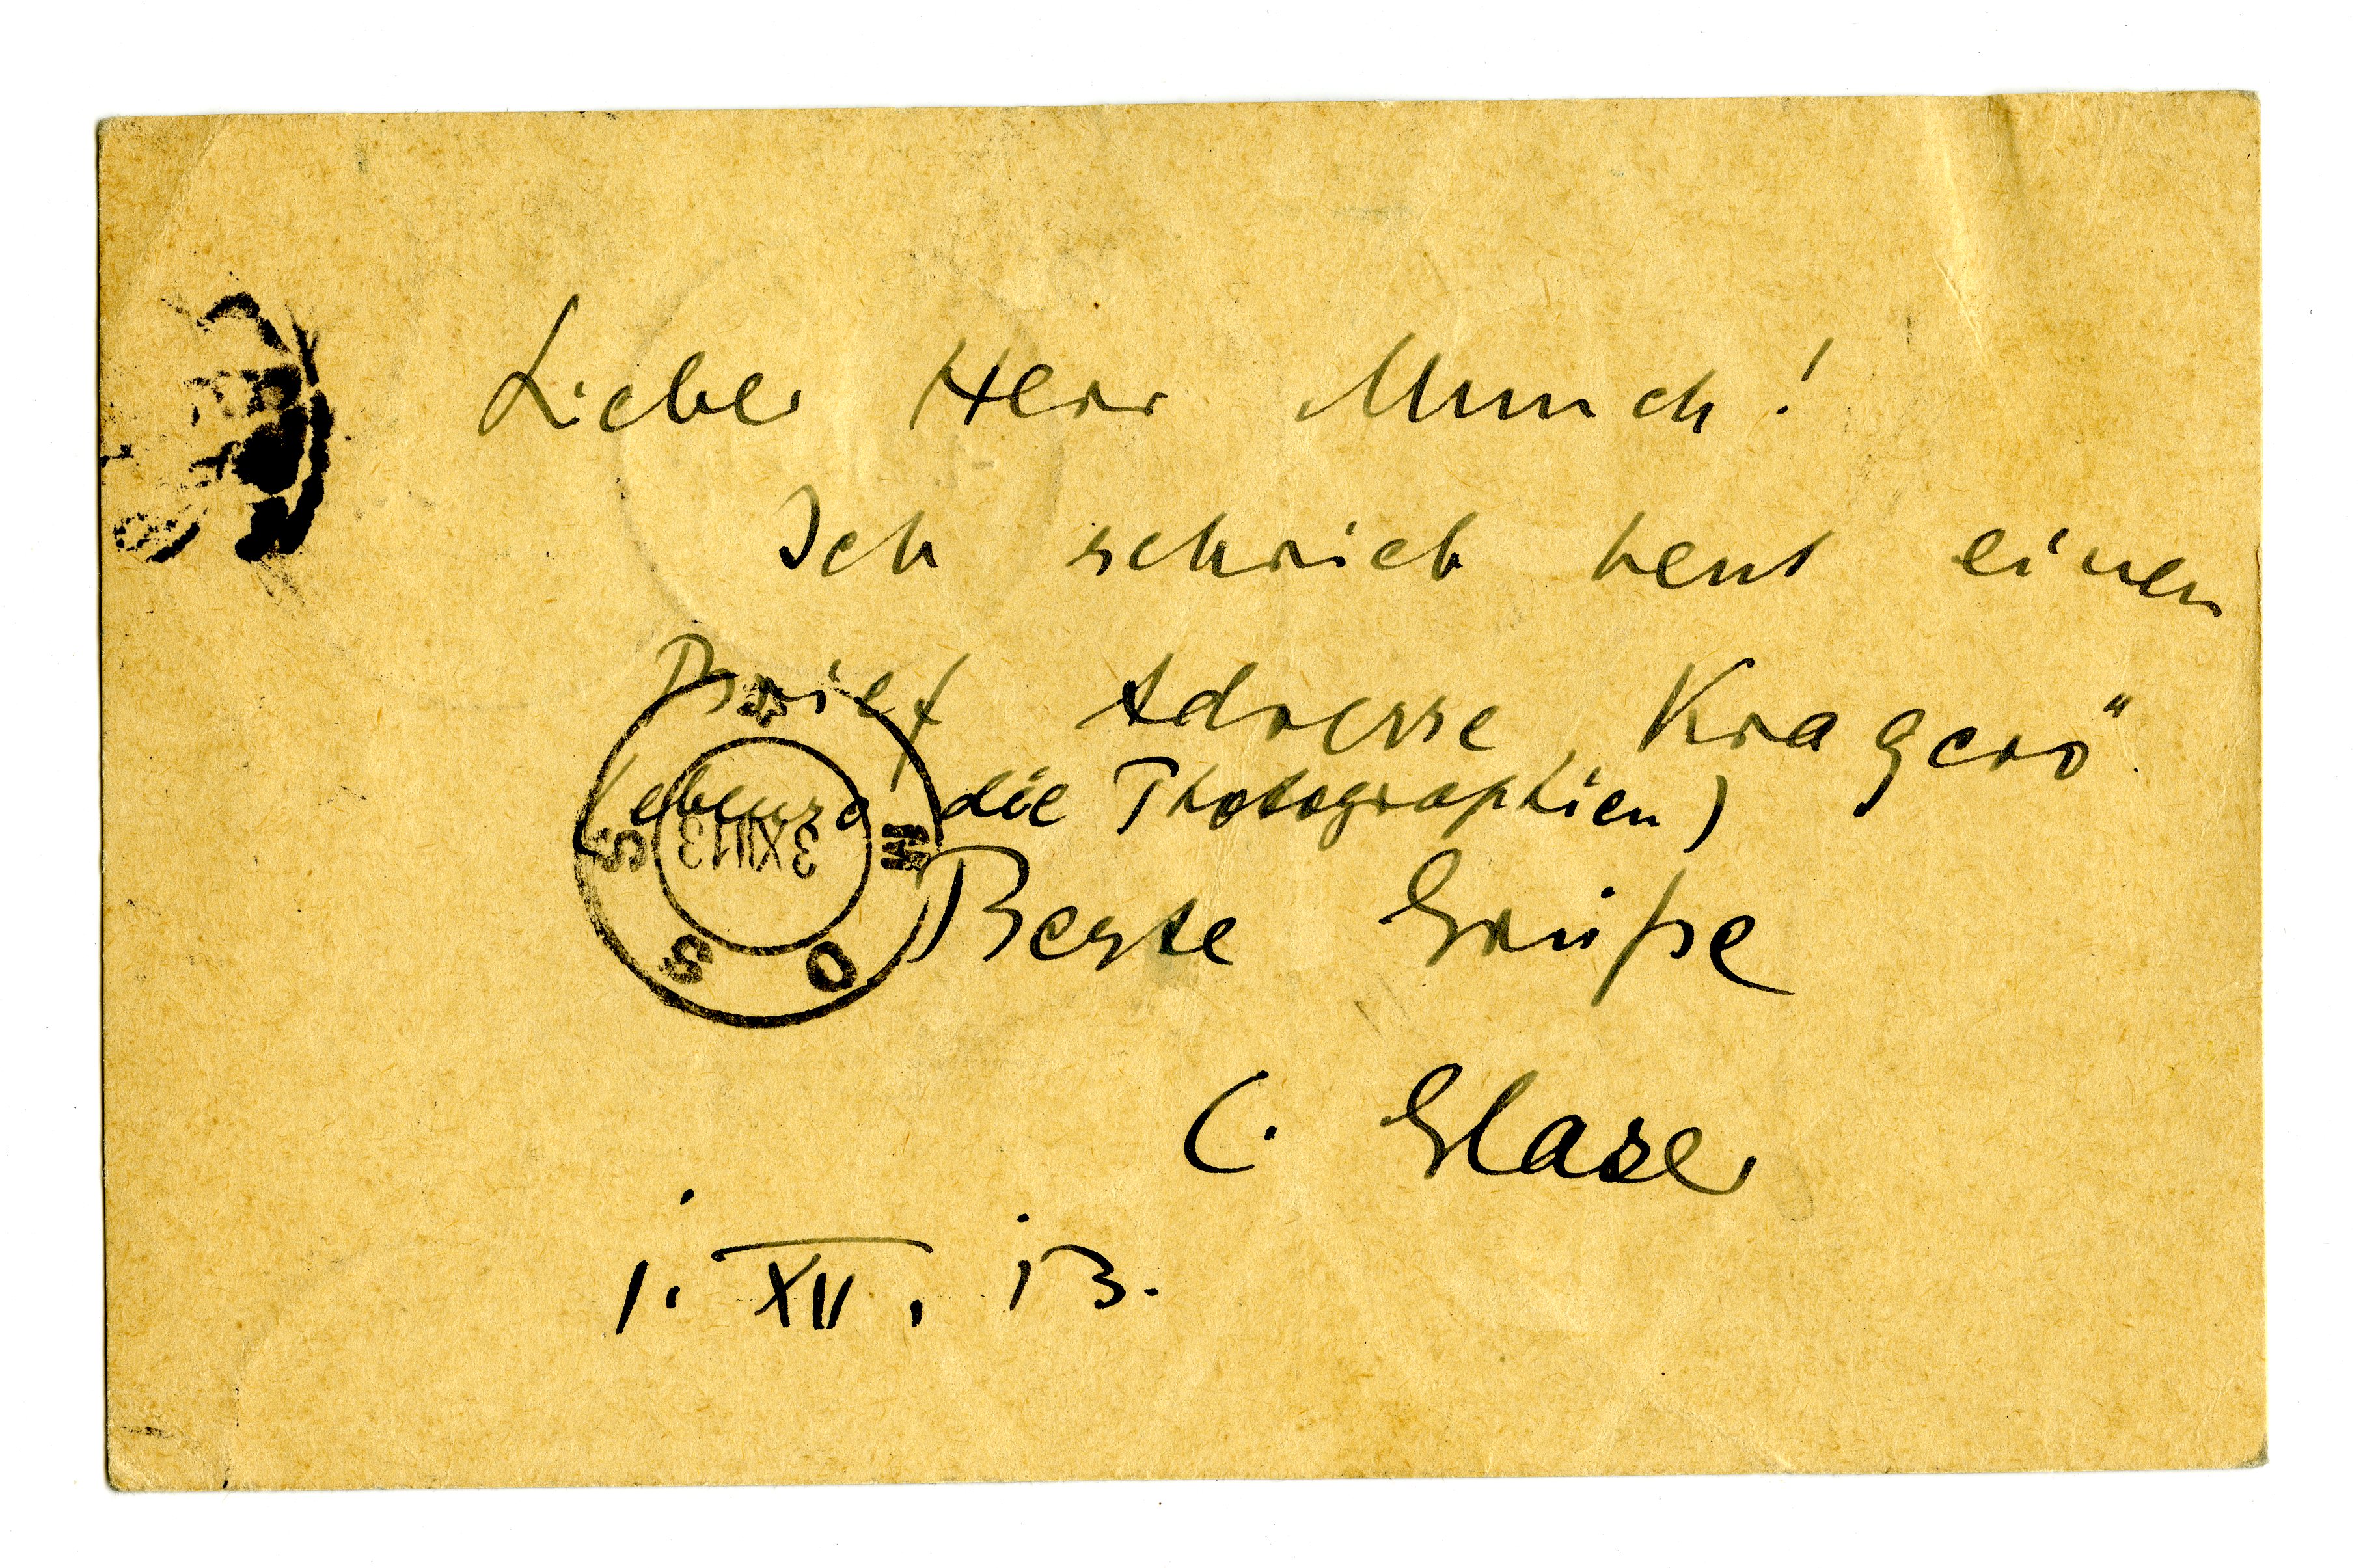 Lieber Herr Munch!
Ich schrieb heut einen
Brief Adresse „Kragerö“.
(ebenso die Photographien)
Beste Grüße
C. Glaser
1. XII. 13.
MOSS
3 XII 13